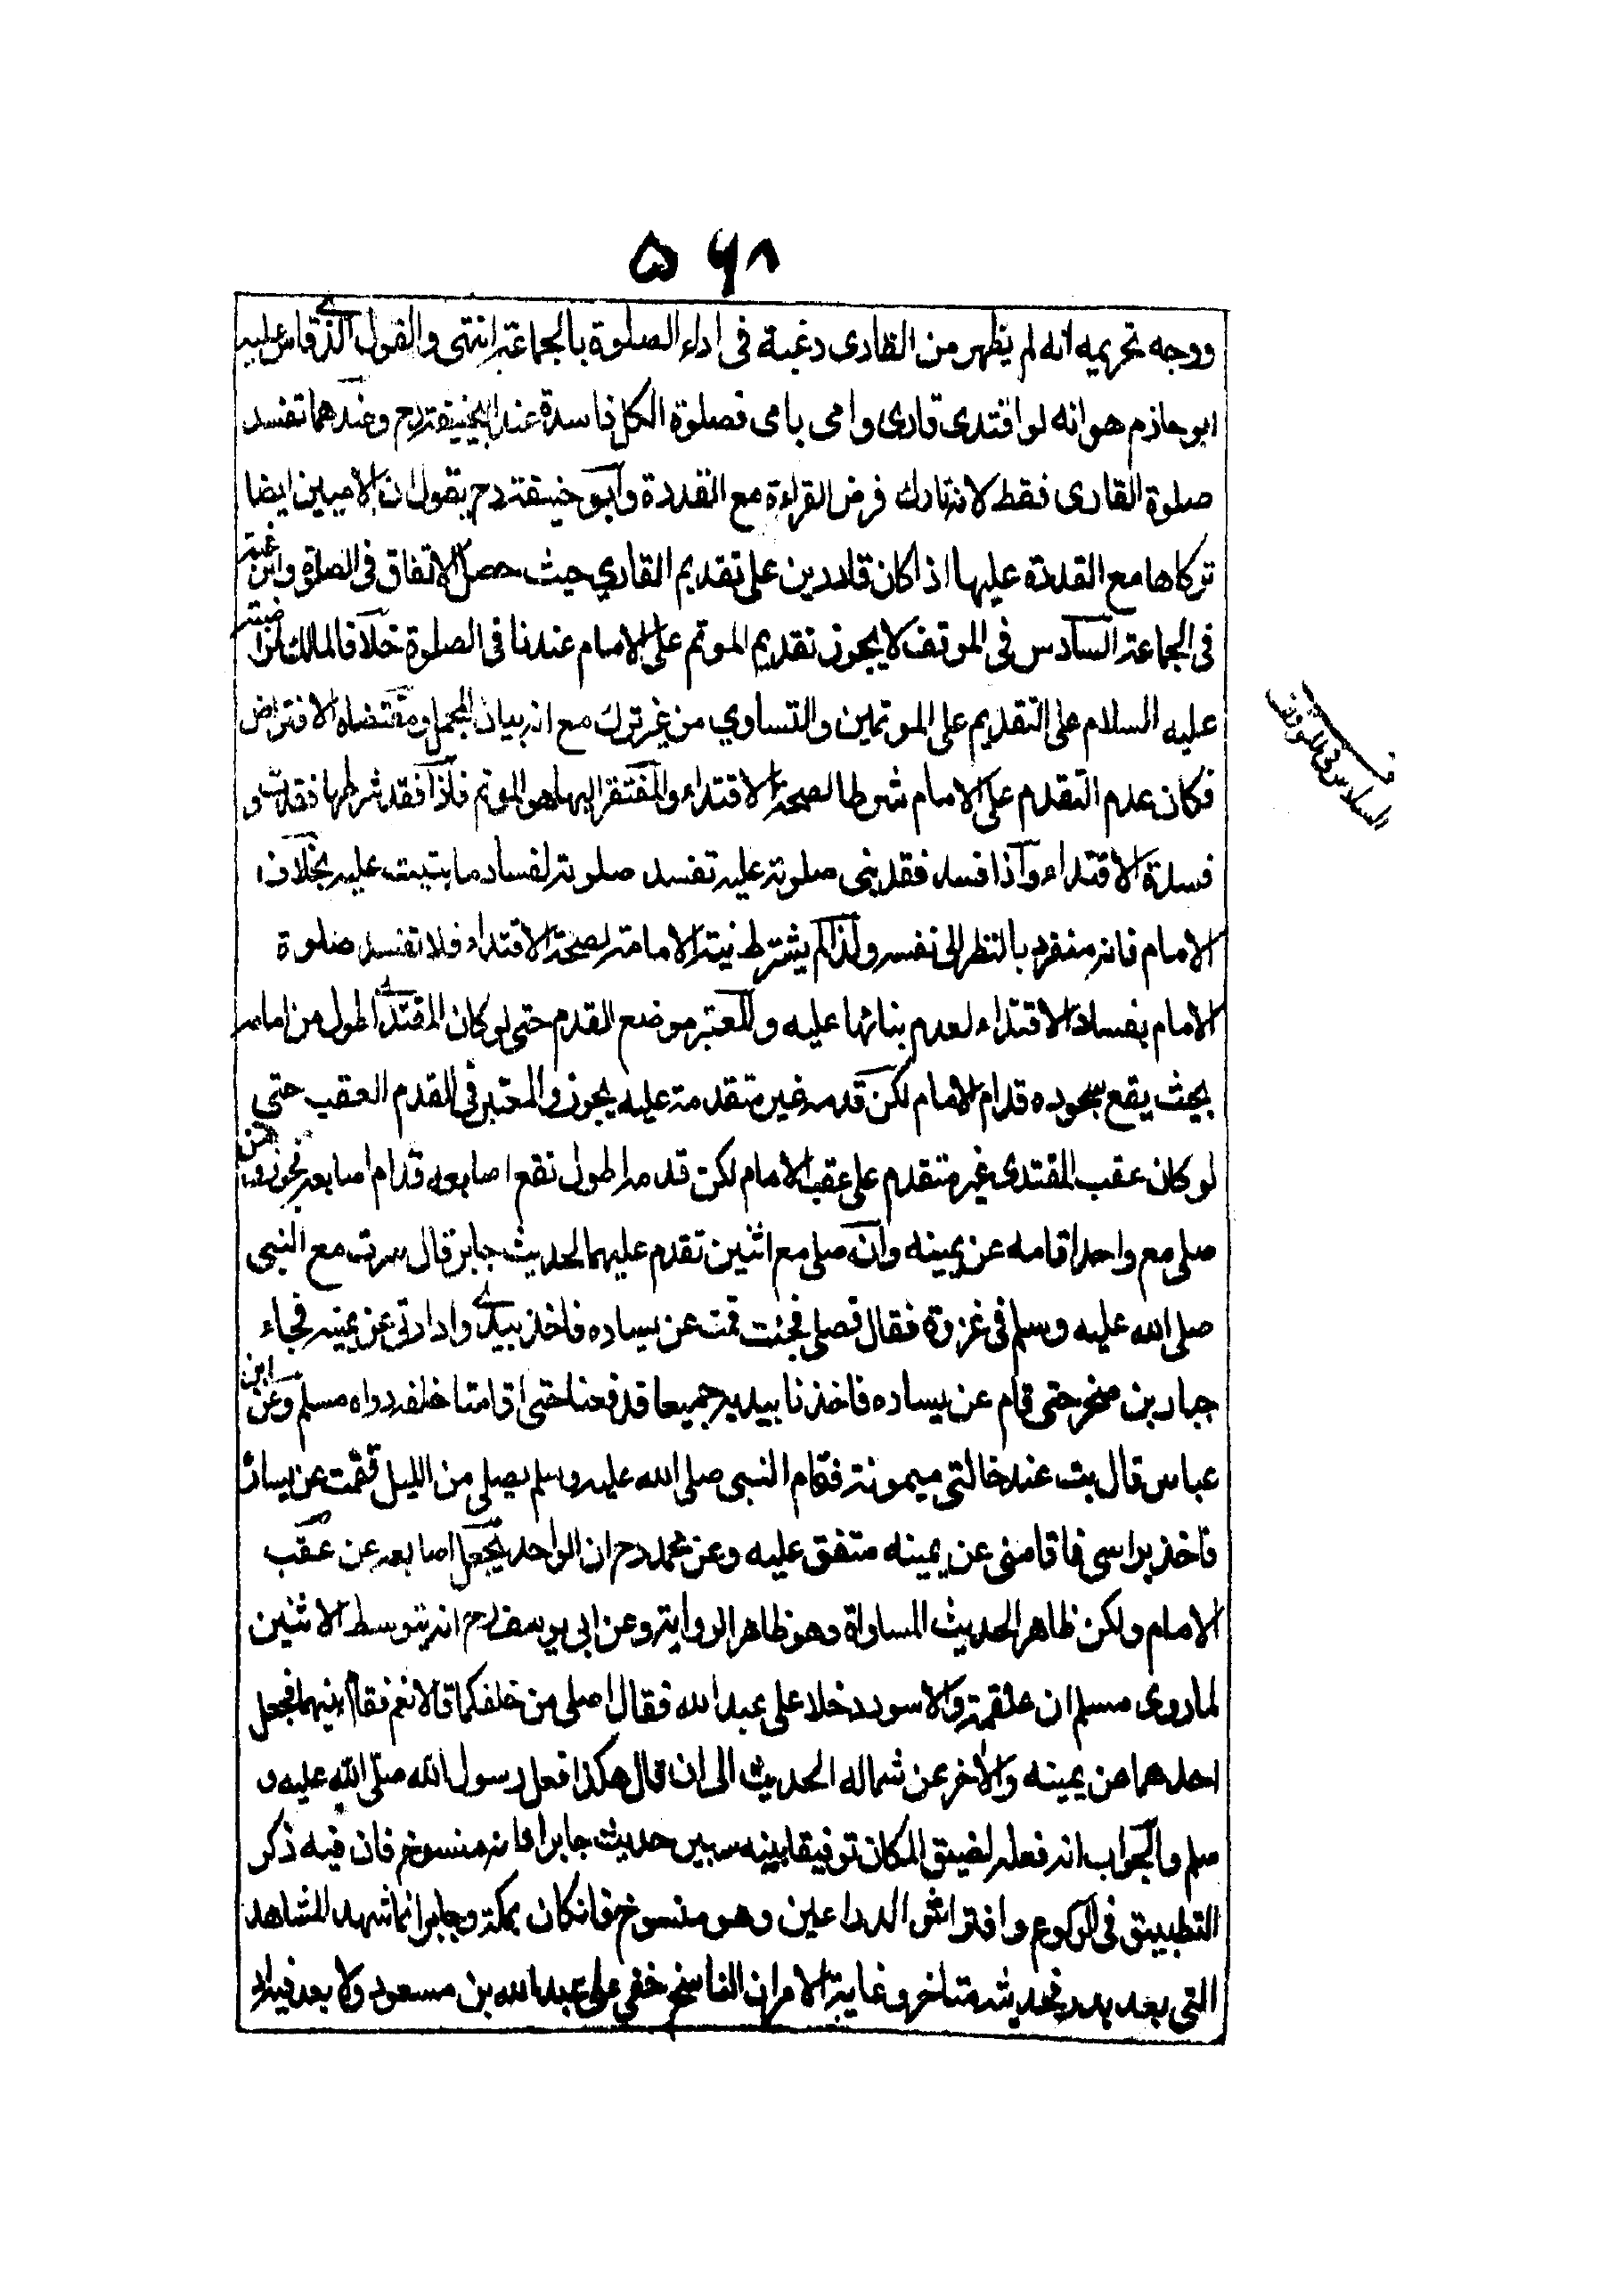 ۵۶۸
ووجه تحريمه انه لم يظهر من القارى رغبة فى اداء الصلوة بالجماعة انتهى والقول الذى قاس عليه
ابو حازم هو انه لو اقتدى قارى وامى بامى فصلوة الكل فاسدة عند ابيحنيفة رح وعندهما تفسد
صلوة القارى فقط لانه تارك فرض القراءة مع القدرة وابو حنيفة رح يقول ان الاميين ايضا
تركاها مع القدرة عليها اذ كان قادرين على تقديم القاري حيث حصل الاتفاق فى الصلوة والرغبة
فى الجماعة السادس فى الموقف لا يجوز تقديم الموتم على الامام عندنا فى الصلوة خلافا لمالك لمواظبته
عليه السلام على التقديم على الموتمين والتساوي من غير ترك مع انه بيان المجمل ومقتضاه الافتراض
فكان عدم التقدم على الامام شرطا لصحة الاقتداء والمفتقر اليها هو الموتم فاذا فقد شرطها فقدت و
فسدة الاقتداء واذا فسد فقد بنى صلوته عليه تفسد صلوته لفساد ما يبتنى عليه بخلاف
الامام فانه منفرد بالنظر الى نفسه ولذا لم يشترط نية الامامة لصحة الاقتداء فلا تفسد صلوة
الامام بفساد الاقتداء لعدم بنائها عليه والمعتبر موضع القدم حتى لو كان المقتدى اطول من امامه
بحيث يقع سجوده قدام الامام لكن قدمه غير متقدمة عليه يجوز والمعتبر فى القدم العقب حتى
لو كان عقب المقتدى غير متقدم على عقب الامام لكن قدمه اطول تقع اصابعه قدام اصابعه يجوز ومن
صلى مع واحد اقامه عن يمينه وانه صلى مع اثنين تقدم عليهما لحديث جابر قال سرت مع النبى
صلى الله عليه وسلم فى غزوة فقال فصلى فجئت قمت عن يساره فاخذ بيدى وادارنى عن يمينه فجاء
جبار بن صخر حتى قام عن يساره فاخذنا بيديه جميعا فدفعنا حتى اقامنا خلفه رواه مسلم وعن ابن
عباس قال بت عند خالتى ميمونة فقام النبى صلى الله عليه وسلم يصلى من الليل فقمت عن يساره
فاخذ براسى فاقامنى عن يمينه متفق عليه وعن محمد رح ان الواحد يجعل اصابعه عن عقب
الامام ولكن ظاهر الحديث المساواة وهو ظاهر الرواية وعن ابى يوسف رح انه يتوسط الاثنين
لما روى مسلم ان علقمة والاسود دخلا على عبد الله فقال اصلى من خلفكما قالا نعم فقام بينهما فجعل
احدهما من يمينه والاخر عن شماله الحديث الى ان قال هكذا فعل رسول الله صلى الله عليه و
سلم والجواب انه فعله لضيق المكان توفيقا بينه وبين حديث جابر او انه منسوخ فان فيه ذكر
التطبيق فى الركوع وافتراش الذراعين وهو منسوخ فانكان بمكة وجابر انما شهد المشاهد
التى بعد بدر فحديثه متاخر وغاية الامر ان الناسخ خفى على عبد الله بن مسعود ولا بعد فيه
السادس فى الموقف